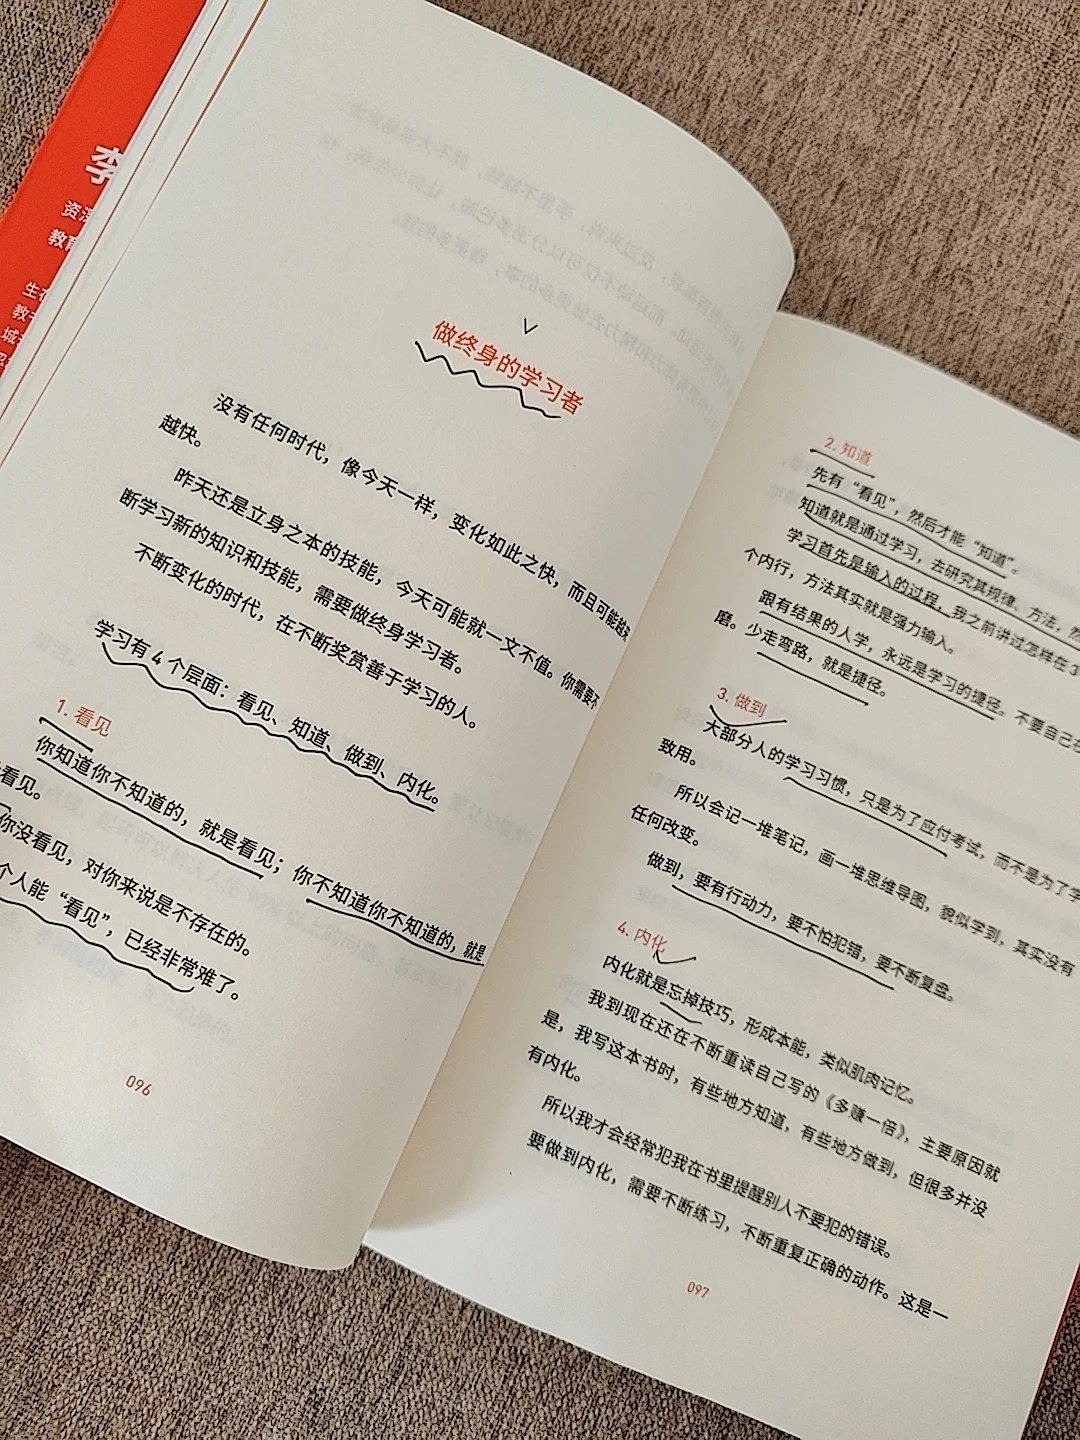 李
资深
教育
生在
教书
城
做终身的学习者
没有任何时代，像今天一样，变化如此之快，而且可能越来
越快。
昨天还是立身之本的技能，今天可能就一文不值。你需要不
断学习新的知识和技能，需要做终身学习者。
不断变化的时代，在不断奖赏善于学习的人。
学习有 4 个层面：看见、知道、做到、内化。
1. 看见
你知道你不知道的，就是看见；你不知道你不知道的，就是
看见。
你没看见，对你来说是不存在的。
个人能“看见”，已经非常难了。
096
2. 知道
先有“看见”，然后才能“知道”。
知道就是通过学习，去研究其规律、方法，然
学习首先是输入的过程，我之前讲过怎样在 3
个内行，方法其实就是强力输入。
跟有结果的人学，永远是学习的捷径。不要自己去
磨。少走弯路，就是捷径。
3. 做到
大部分人的学习习惯，只是为了应付考试，而不是为了学
致用。
所以会记一堆笔记，画一堆思维导图，貌似学到，其实没有
任何改变。
做到，要有行动力，要不怕犯错，要不断复盘。
4. 内化
内化就是忘掉技巧，形成本能，类似肌肉记忆。
我到现在还在不断重读自己写的《多赚一倍》，主要原因就
是，我写这本书时，有些地方知道，有些地方做到，但很多并没
有内化。
所以我才会经常犯我在书里提醒别人不要犯的错误。
要做到内化，需要不断练习，不断重复正确的动作。这是一
097